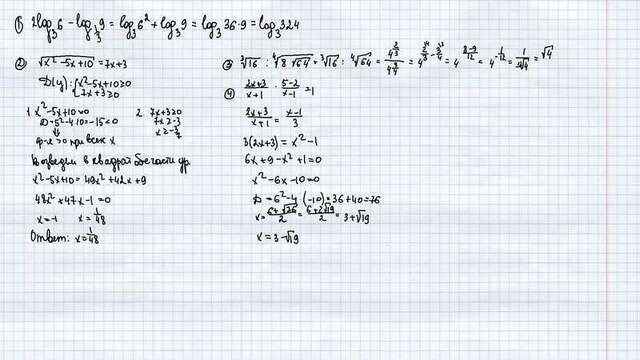 ① 2log₃6 - log_{1/3}9 = log₃6² + log₃9 = log₃36·9 = log₃324
② √(x²-5x+10) = 7x+3
D(y): {x²-5x+10≥0
{7x+3≥0
1. x²-5x+10=0
D=5²-4·10=-15<0
ф-я >0 при всех x
2. 7x+3≥0
7x≥-3
x≥-3/7
Возведем в квадрат обе части ур.
x²-5x+10=49x²+42x+9
48x²+47x-1=0
x=-1 x=1/48
Ответ: x=1/48
③ ∛16 : ∜(8√64)
④ (2x+3)/(x+1) · (5-2)/(x-1) = 1
(2x+3)/(x+1) = (x-1)/3
3(2x+3)=x²-1
6x+9-x²+1=0
x²-6x-10=0
D=6²-4·(-10)=36+40=76
x=(6+√76)/2=(6+2√19)/2=3+√19
x=3-√19